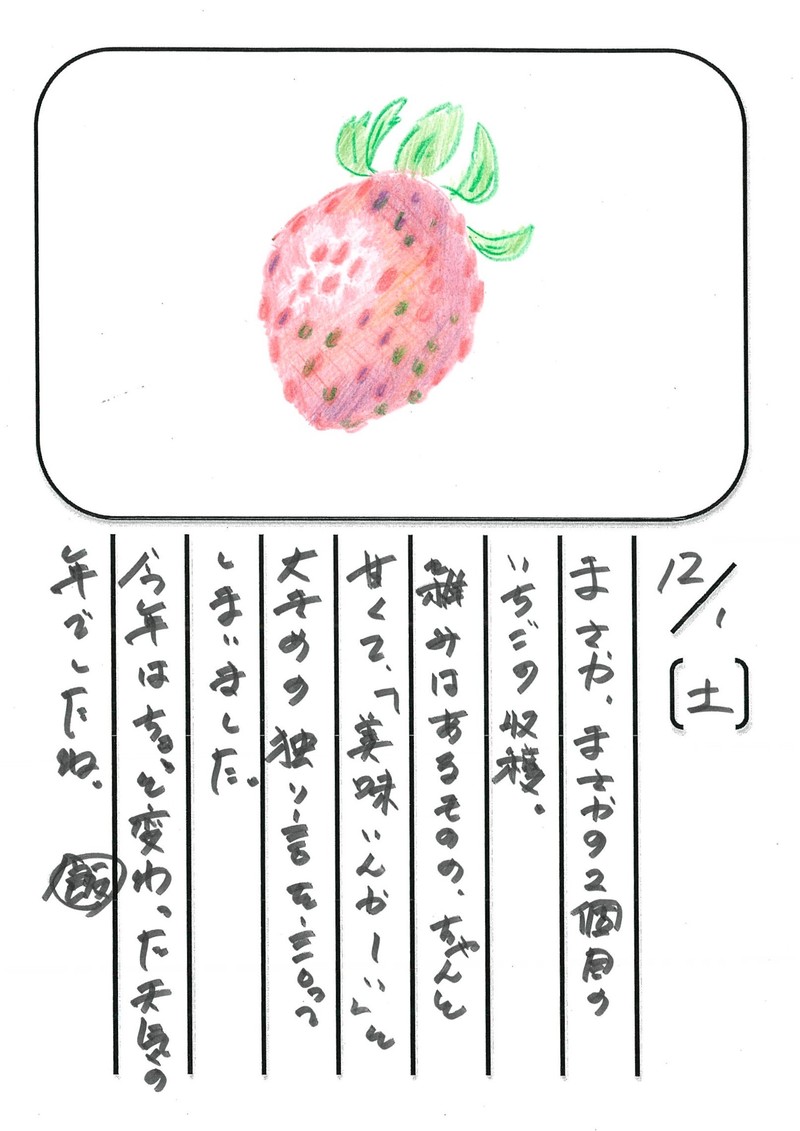 12/1
〔土〕
まさか、まさかの2個目の
いちごの収穫。
雑みはあるものの、ちゃんと
甘くて、「美味いんかーい」と
大きめの独り言を言って
しまいました。
今年はちょっと変わった天気の
年でしたね。
飯